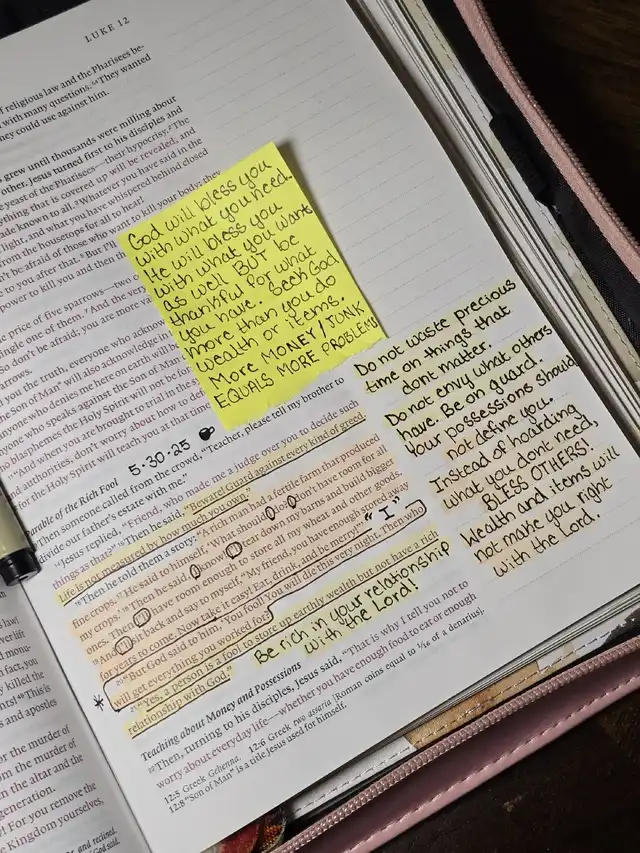 LUKE 12
of religious law and the Pharisees be-
with many questions. They wanted
they could use against him.
grew until thousands were milling about
other, Jesus turned first to his disciples and
yeast of the Pharisees—their hypocrisy. The
ything that is covered up will be revealed, and
ade known to all. Whatever you have said in the
light, and what you have whispered behind closed
from the housetops for all to hear!
n't be afraid of those who want to kill your body; they
to you after that. But I'll
power to kill you and then th
price of five sparrows—two
ingle one of them. And the ver
So don't be afraid; you are more
arrows.
l you the truth, everyone who acknow
the Son of Man will also acknowledge in
anyone who denies me here on earth will
who speaks against the Son of Man
blasphemes the Holy Spirit will not be
And when you are brought to trial in the s
and authorities, don't worry about how to de
for the Holy Spirit will teach you at that time
God will bless you
with what you need.
He will bless you
with what you want
as well BUT be
thankful for what
you have. Seek God
more than you do
wealth or items.
More MONEY / JUNK
EQUALS MORE PROBLEMS
5-30-25
Parable of the Rich Fool
Then someone called from the crowd, "Teacher, please tell my brother to
divide our father's estate with me."
Jesus replied, "Friend, who made me a judge over you to decide such
things as that?" Then he said, "Beware! Guard against every kind of greed.
Life is not measured by how much you own."
Then he told them a story: "A rich man had a fertile farm that produced
fine crops. He said to himself, 'What should I do? I don't have room for all
my crops.' Then he said, 'I know! I'll tear down my barns and build bigger
ones. Then I'll have room enough to store all my wheat and other goods.
And I'll sit back and say to myself, "My friend, you have enough stored away
for years to come. Now take it easy! Eat, drink, and be merry!"'
"I"
"But God said to him, 'You fool! You will die this very night. Then who
will get everything you worked for?'
"Yes, a person is a fool to store up earthly wealth but not have a rich
relationship with God."
Be rich in your relationship
with the Lord!
Do not waste precious
time on things that
dont matter.
Do not envy what others
have. Be on guard.
Your possessions should
not define you.
Instead of hoarding
what you dont need,
BLESS OTHERS!
Wealth and items will
not make you right
with the Lord.
Teaching about Money and Possessions
Then, turning to his disciples, Jesus said, "That is why I tell you not to
worry about everyday life—whether you have enough food to eat or enough
12:5 Greek Gehenna. 12:6 Greek two assaria [Roman coins equal to 1/16 of a denarius].
12:8 "Son of Man" is a title Jesus used for himself.
and apostles
for the murder of
om the murder of
n the altar and the
generation.
For you remove the
e Kingdom yourselves,